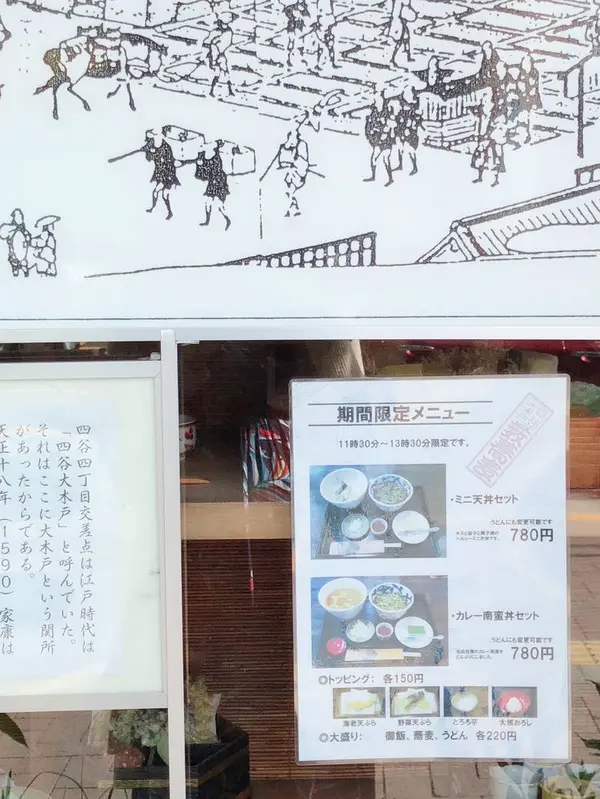 四谷四丁目交差点は江戸時代は
「四谷大木戸」と呼んでいた。
それはここに大木戸という関所
があったからである。
天正十八年（1590）家康は
期間限定メニュー
11時30分～13時30分限定です。
・ミニ天丼セット
うどんにも変更可能です
780円
・カレー南蛮丼セット
うどんにも変更可能です
780円
◎トッピング： 各150円
海老天ぷら 野菜天ぷら とろろ芋 大根おろし
◎大盛り： 御飯、蕎麦、うどん 各220円